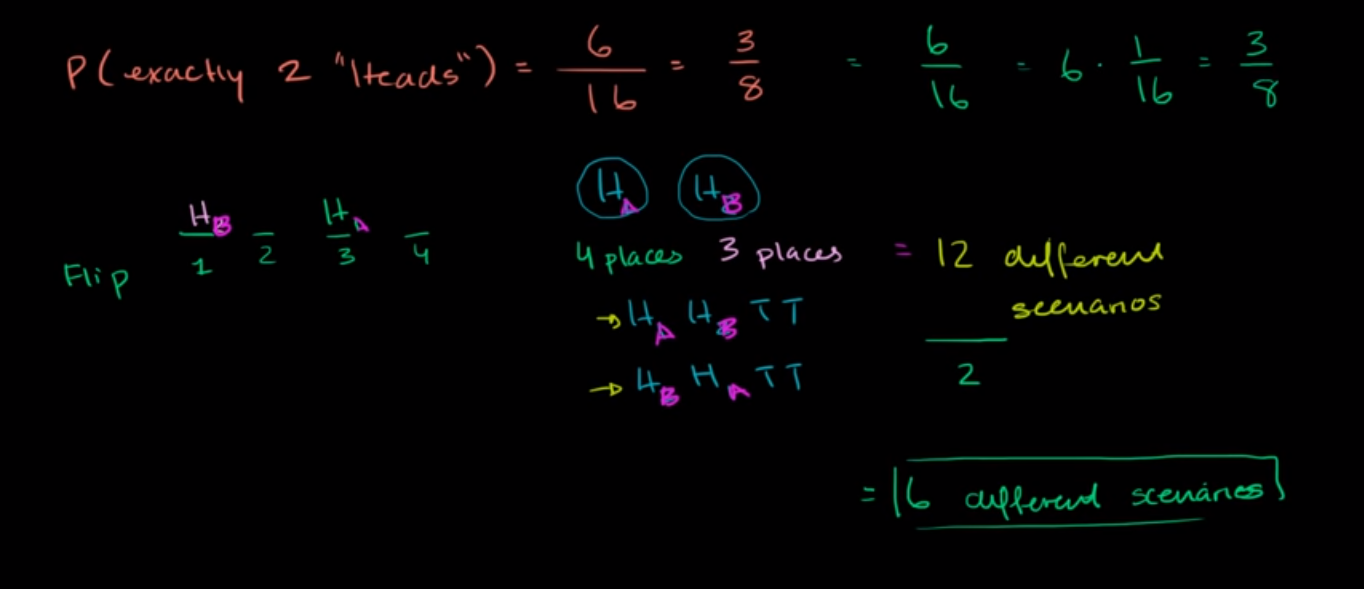 P(exactly 2 "Heads") = 6/16 = 3/8 = 6/16 = 6 · 1/16 = 3/8
H_A H_B
H_B _ H_A _
Flip 1 2 3 4
4 places 3 places = 12 different
scenarios
→ H_A H_B T T
2
→ H_B H_A T T
= 6 different scenarios